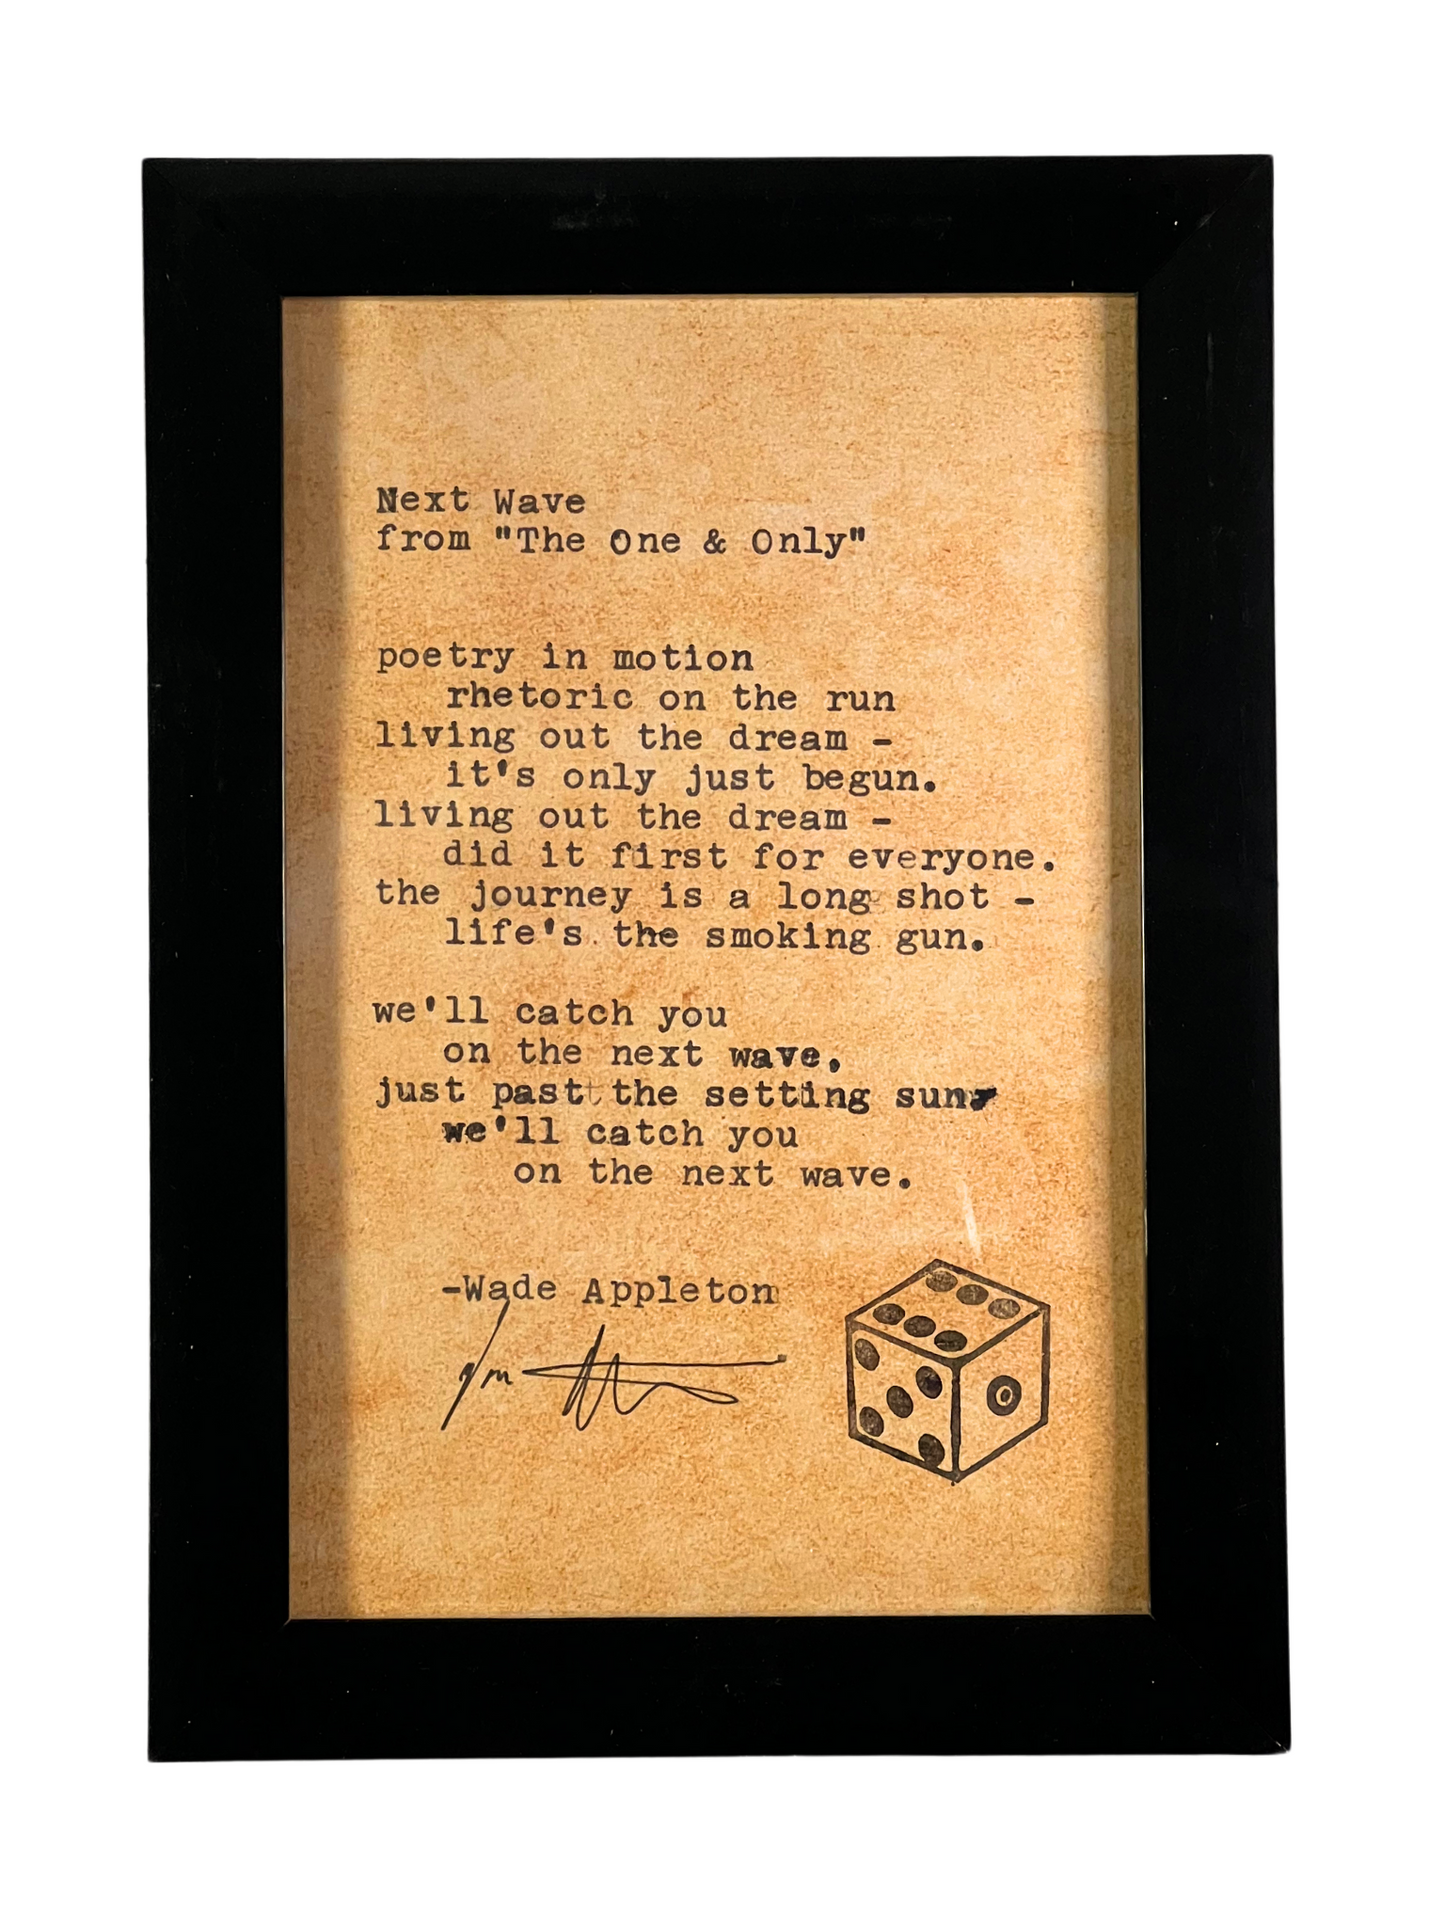 Next Wave
from "The One & Only"
poetry in motion
rhetoric on the run
living out the dream -
it's only just begun.
living out the dream -
did it first for everyone.
the journey is a long shot -
life's the smoking gun.
we'll catch you
on the next wave,
just past the setting sun,
we'll catch you
on the next wave.
-Wade Appleton